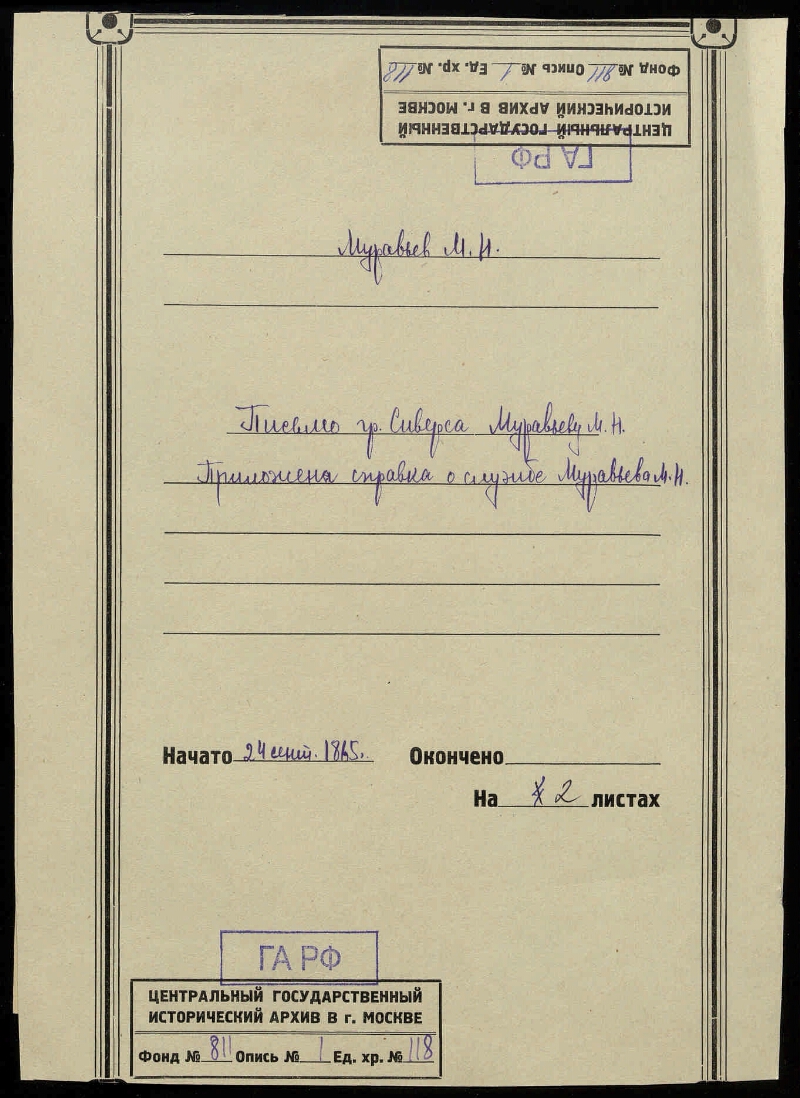 Фонд № 118 Опись № 1 Ед. хр. № 811
ЦЕНТРАЛЬНЫЙ ГОСУДАРСТВЕННЫЙ
ИСТОРИЧЕСКИЙ АРХИВ В г. МОСКВЕ
ГА РФ
Муравьев М.Н.
Письмо гр. Сиверса Муравьеву М.Н.
Приложена справка о службе Муравьева М.Н.
Начато 24 сент. 1865. Окончено
На 2 листах
ГА РФ
ЦЕНТРАЛЬНЫЙ ГОСУДАРСТВЕННЫЙ
ИСТОРИЧЕСКИЙ АРХИВ В г. МОСКВЕ
Фонд № 811 Опись № 1 Ед. хр. № 118